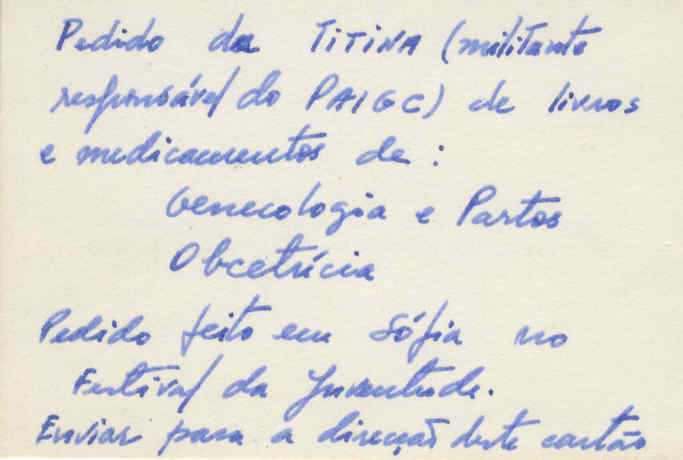 Pedido da TITINA (militante
responsável do PAIGC) de livros
e medicamentos de:
Genecologia e Partos
Obcetrícia
Pedido feito em Sófia no
Festival da Juventude.
Enviar para a direcção deste cartão